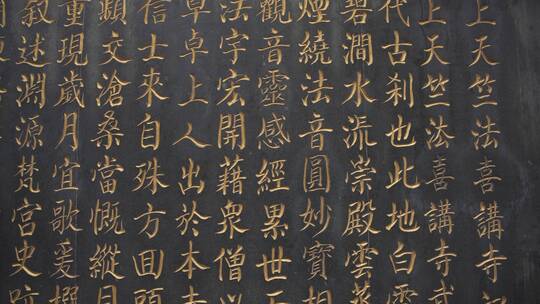 上天竺法喜講寺
上天竺法喜講寺
代古刹也此地白雲
碧澗水流崇殿雲
煙繞法音圓妙寶相
觀音靈感經累世
法宇宏開藉衆僧以
卓卓上人出於本寺
信士來自殊方回顧
頻交滄桑當慨縱
重現歲月宜歌爰撰
敘述淵源梵宮史跡